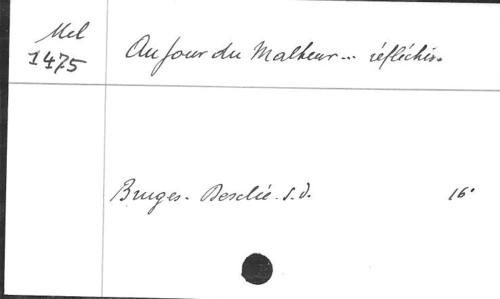 Mel
1475
Au jour du Malheur... réfléchis.
Bruges. Desclée. s.d. 16°